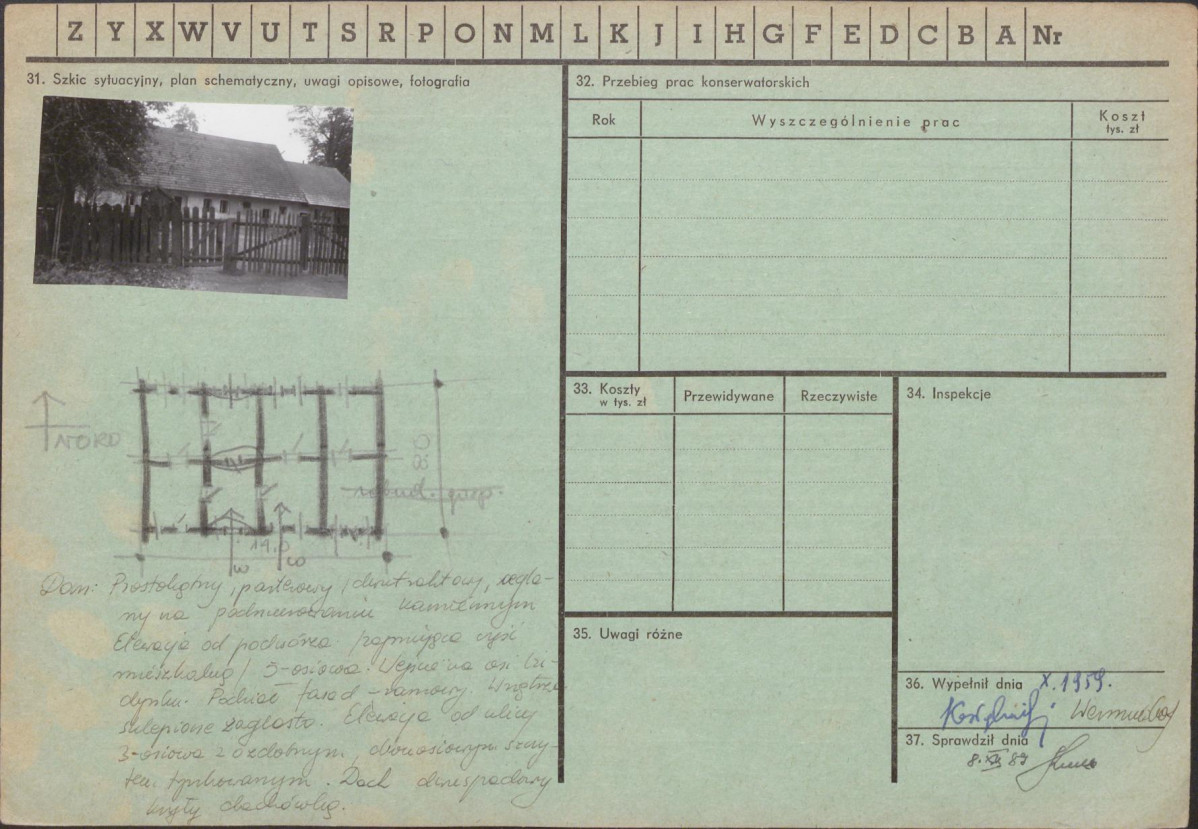 Z Y X W V U T S R P O N M L K J I H G F E D C B A Nr
31. Szkic sytuacyjny, plan schematyczny, uwagi opisowe, fotografia
NORD
8.0
14.0
w w
Dom: Prostokątny, parterowy, dwutraktowy, cegla-
ny na podmurowaniu kamiennym
Elewacja od podwórza zajmująca część
mieszkalną / 5-osiowa. Wejście na osi bu-
dynku. Podział fasad - ramowy. Wnętrze
sklepione żaglasto. Elewacja od ulicy
3-osiowa z ozdobnym, dwuosiowym szczy-
tem tynkowanym. Dach dwuspadowy
kryty dachówką.
32. Przebieg prac konserwatorskich
Rok Wyszczególnienie prac Koszt
tys. zł
33. Koszty
w tys. zł
Przewidywane Rzeczywiste
34. Inspekcje
35. Uwagi różne
36. Wypełnił dnia X.1959.
37. Sprawdził dnia
8.XII 89